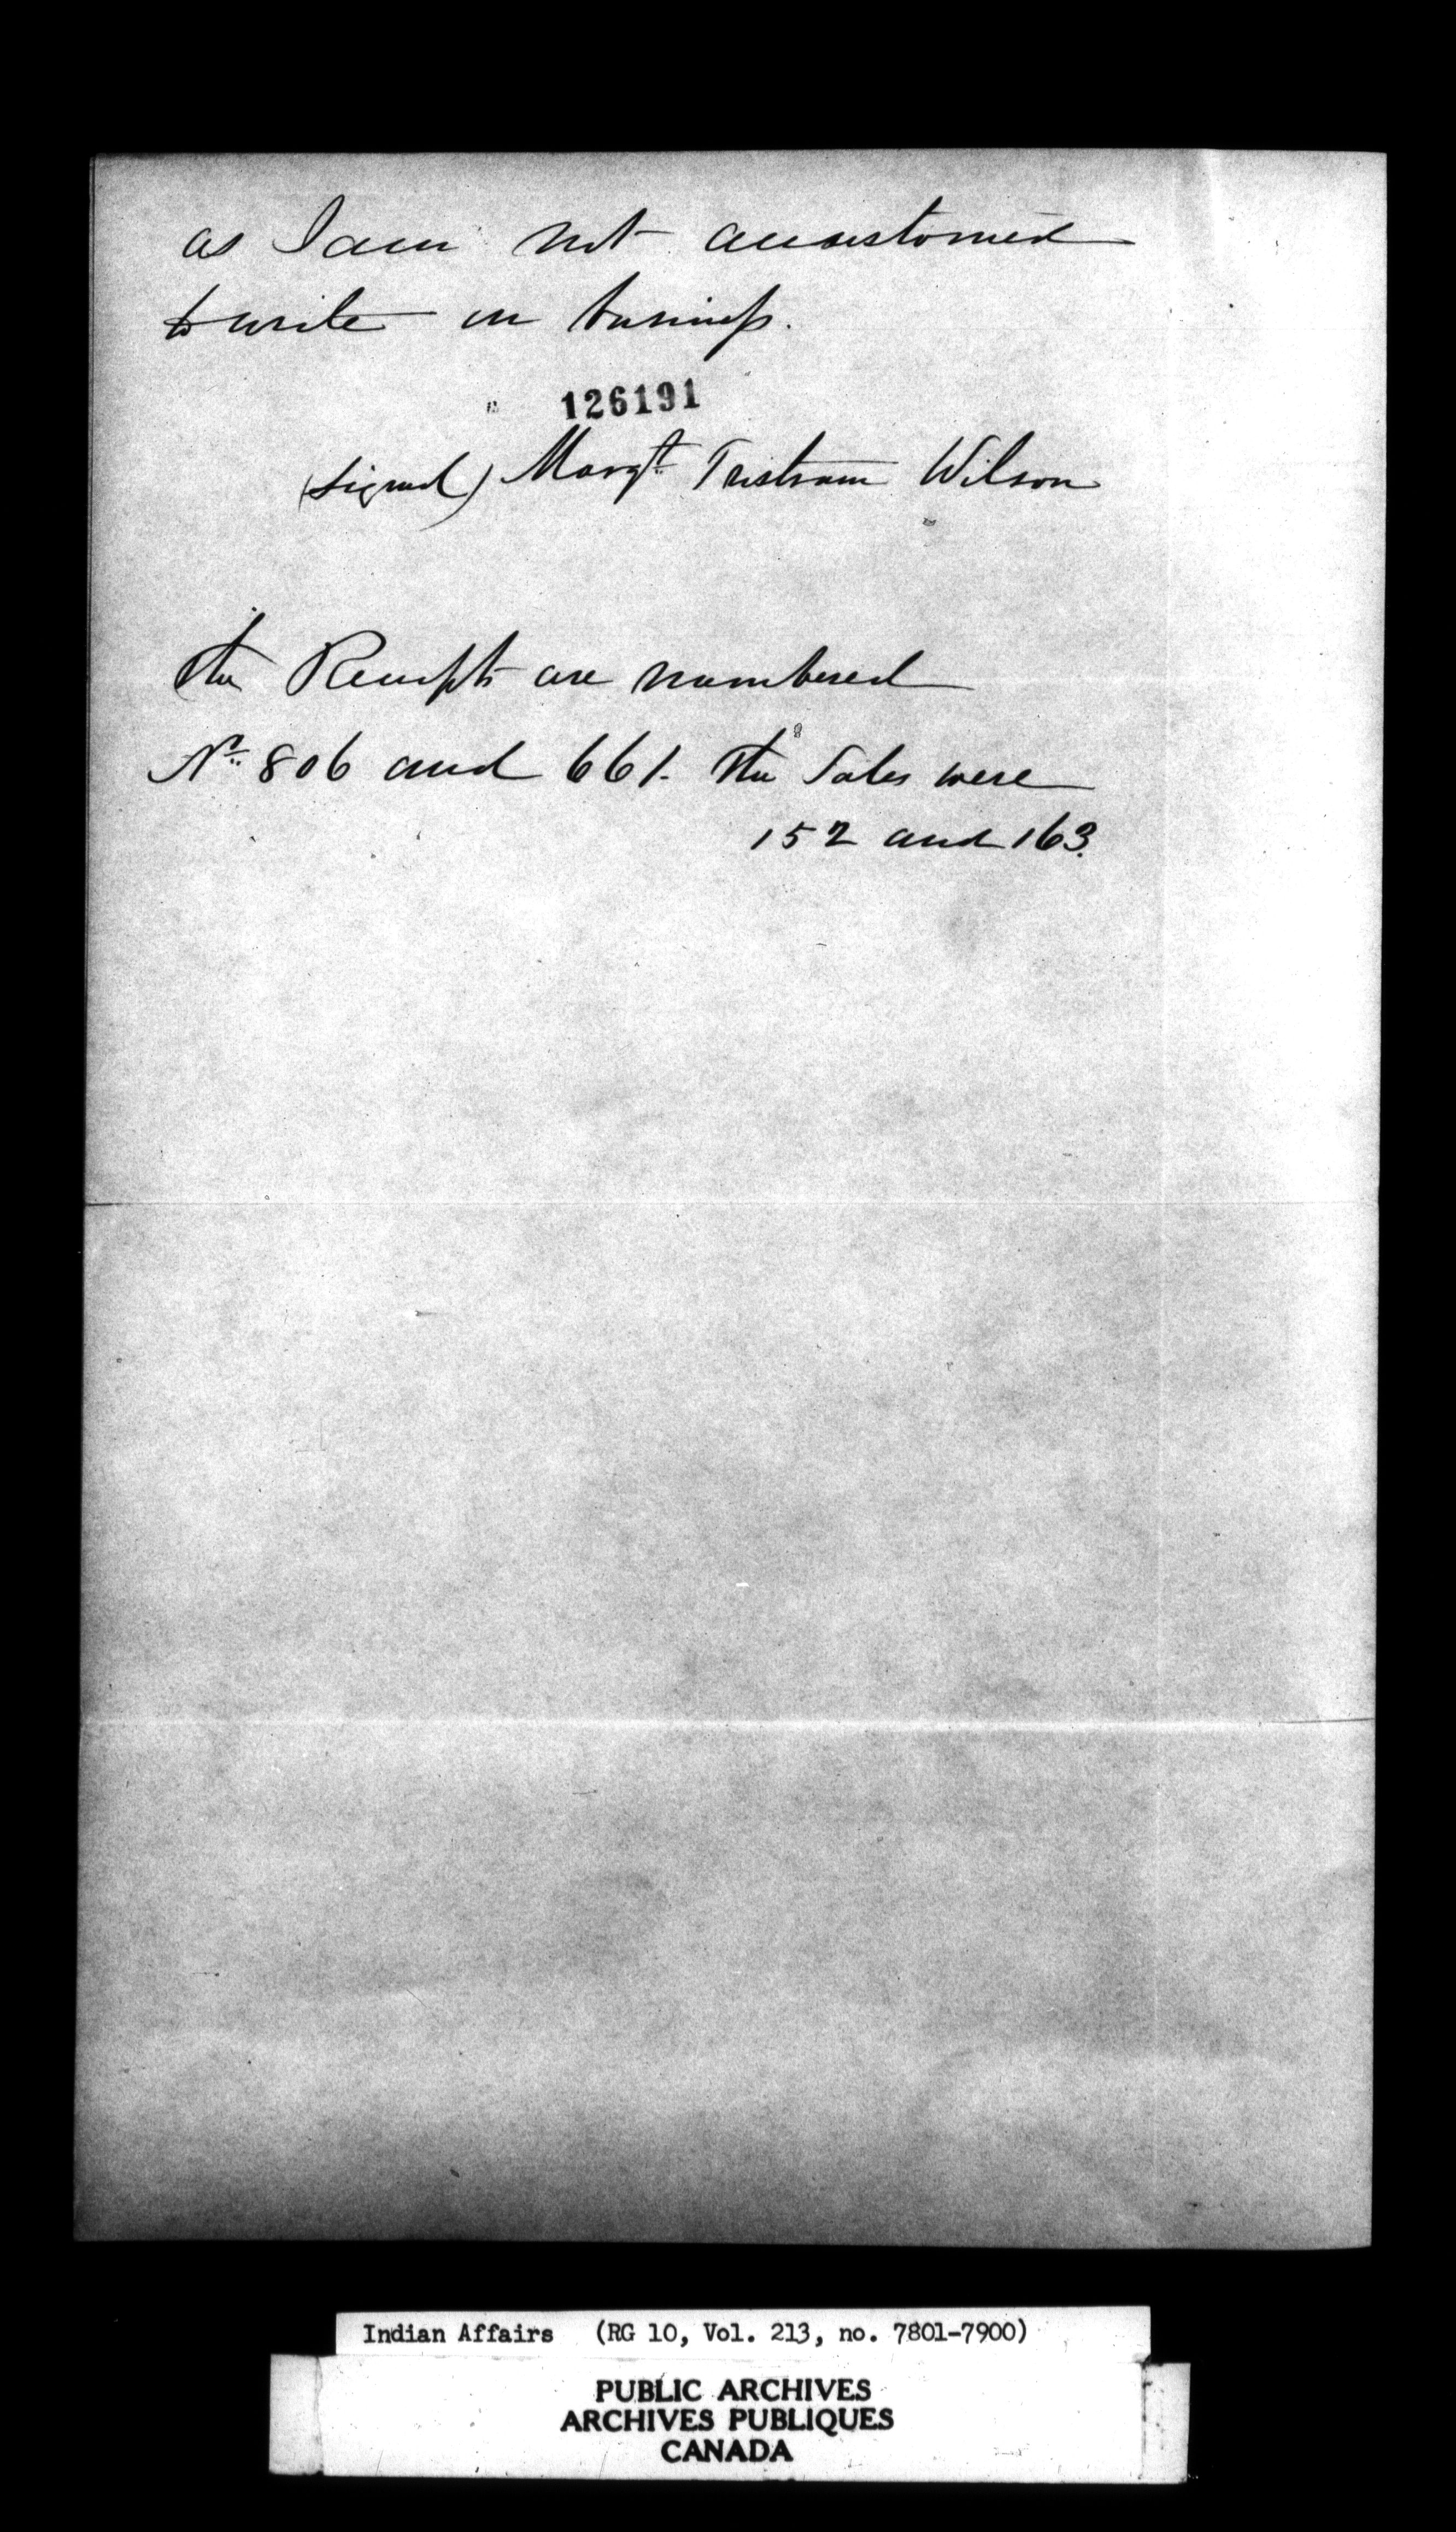 as I am not accustomed
to write on business.
126191
(signed) Margt Tristram Wilson
The Receipts are numbered
No 806 and 661. The Sales were
152 and 163.
Indian Affairs (RG 10, Vol. 213, no. 7801-7900)
PUBLIC ARCHIVES
ARCHIVES PUBLIQUES
CANADA